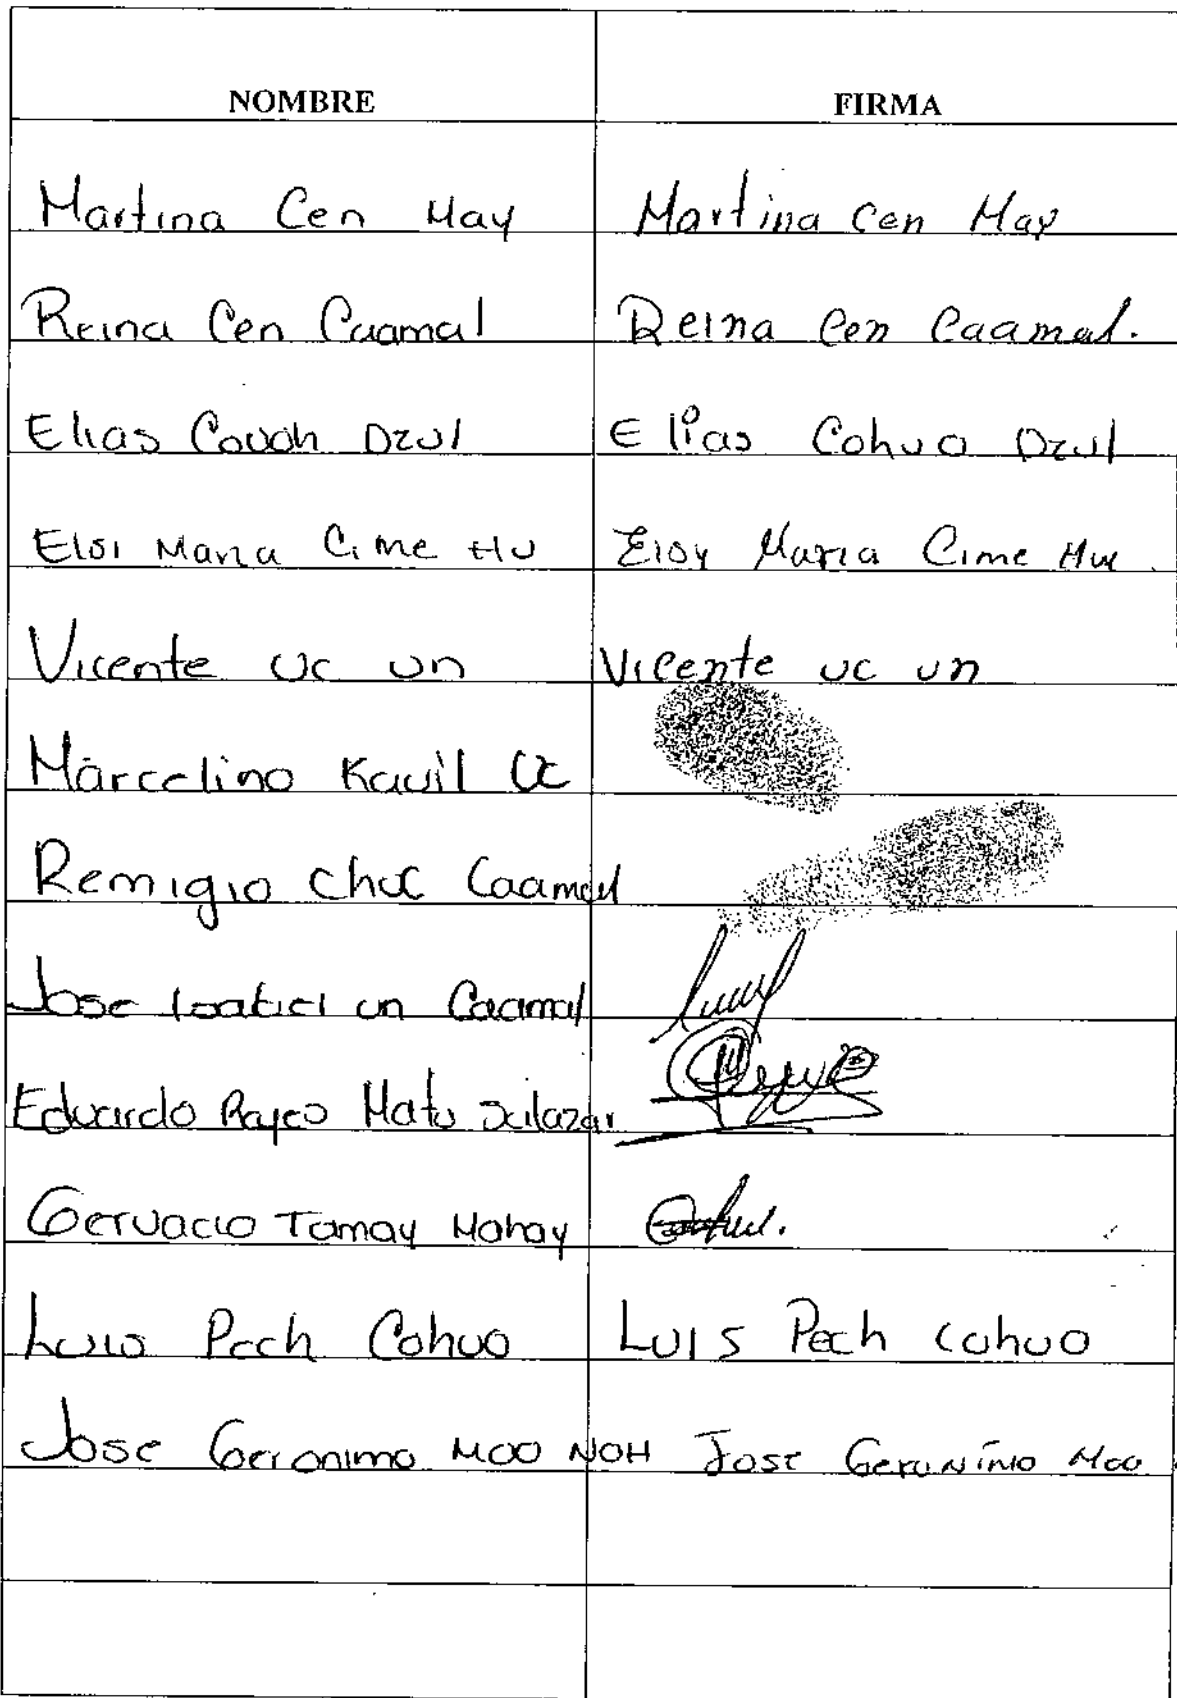 NOMBRE FIRMA
Martina Cen May Martina Cen May
Reina Cen Caamal Reina Cen Caamal.
Elias Couoh Dzul Elias Cohuo Dzul
Eloi Maria Cime Hu Eloy Maria Cime
Vicente Uc un Vicente uc un
Marcelino Kauil Uc
Remigio Chuc Caamal
Jose un Caamal
Eduardo Matu Salazar
Gervacio Tamay Mahay
Luis Pech Cohuo LUIS Pech Cohuo
Jose Geronimo MOO NOH Jose Geronimo Moo